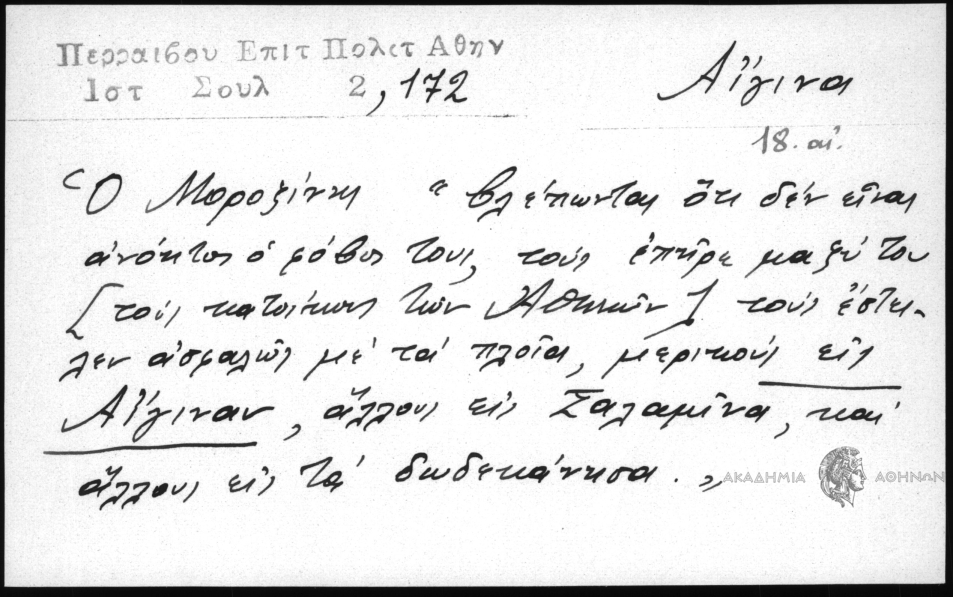 Περραιβου Επιτ Πολετ Αθην
Ιστ Σουλ 2, 172
Αἴγινα
18. αἰ.
Ὁ Μοροζίνης "βλέπωντας ὅτι δέν εἶναι
ἀνόητος ὁ φόβος τους, τούς ἐπῆρε μαζύ του
[τούς κατοίκους τῶν Ἀθηνῶν] τούς ἔστει-
λεν ἀσφαλῶς μέ τά πλοῖα, μερικούς εἰς
Αἴγιναν, ἄλλους εἰς Σαλαμῖνα, καί
ἄλλους εἰς τά δωδεκάνησα."
ΑΚΑΔΗΜΙΑ ΑΘΗΝΩΝ